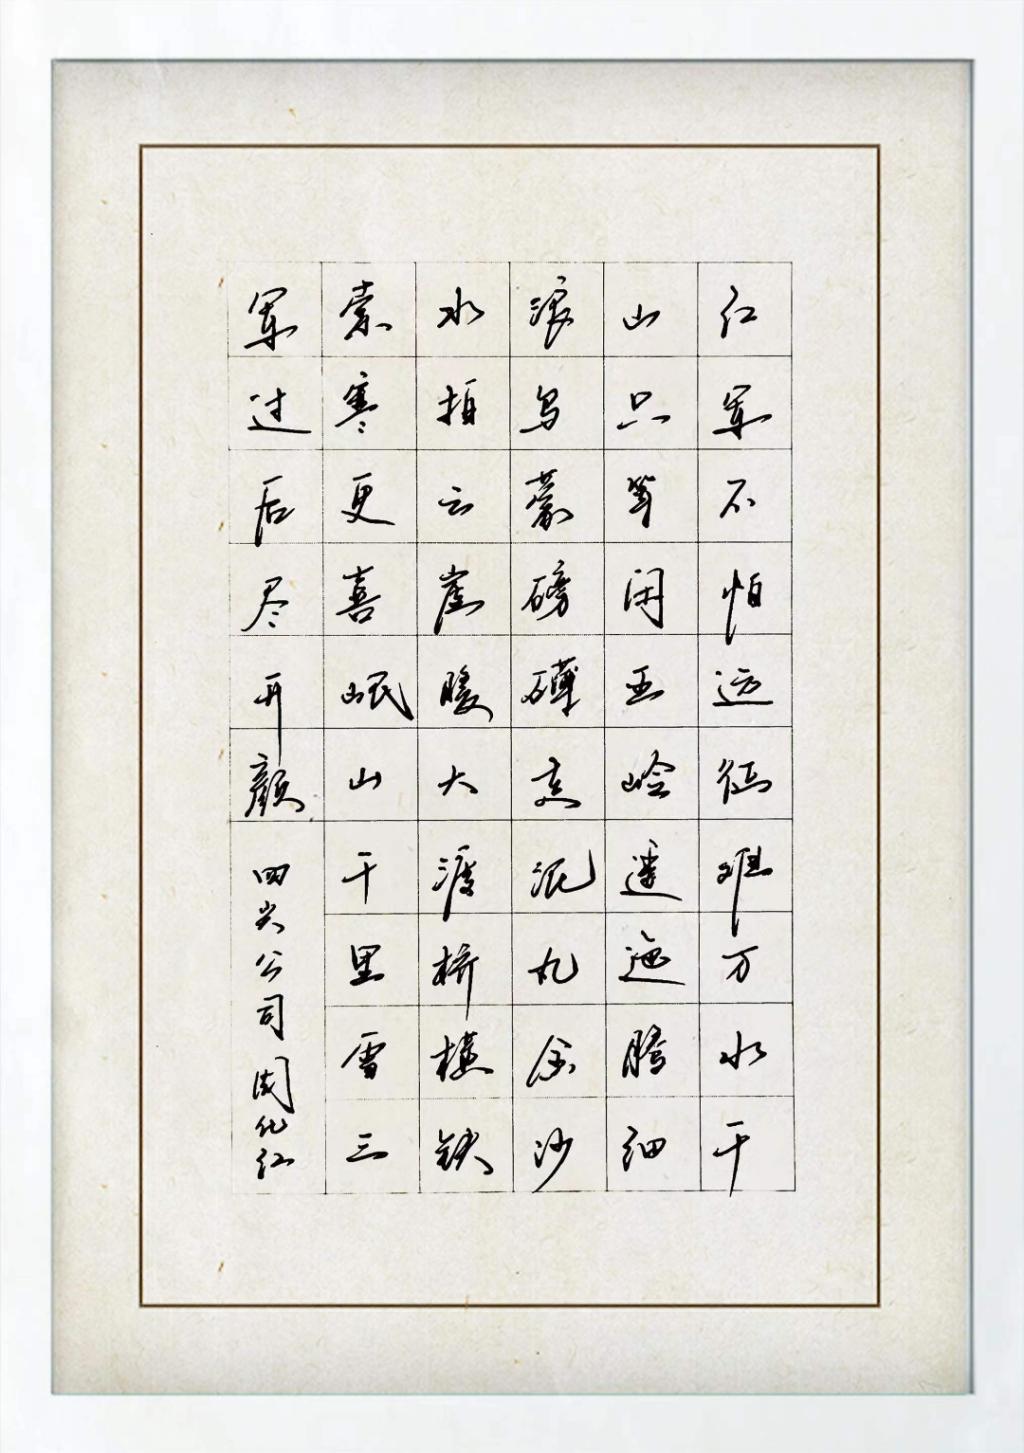 红军不怕远征难万水千
山只等闲五岭逶迤腾细
浪乌蒙磅礴走泥丸金沙
水拍云崖暖大渡桥横铁
索寒更喜岷山千里雪三
军过后尽开颜
四尖公司周化红